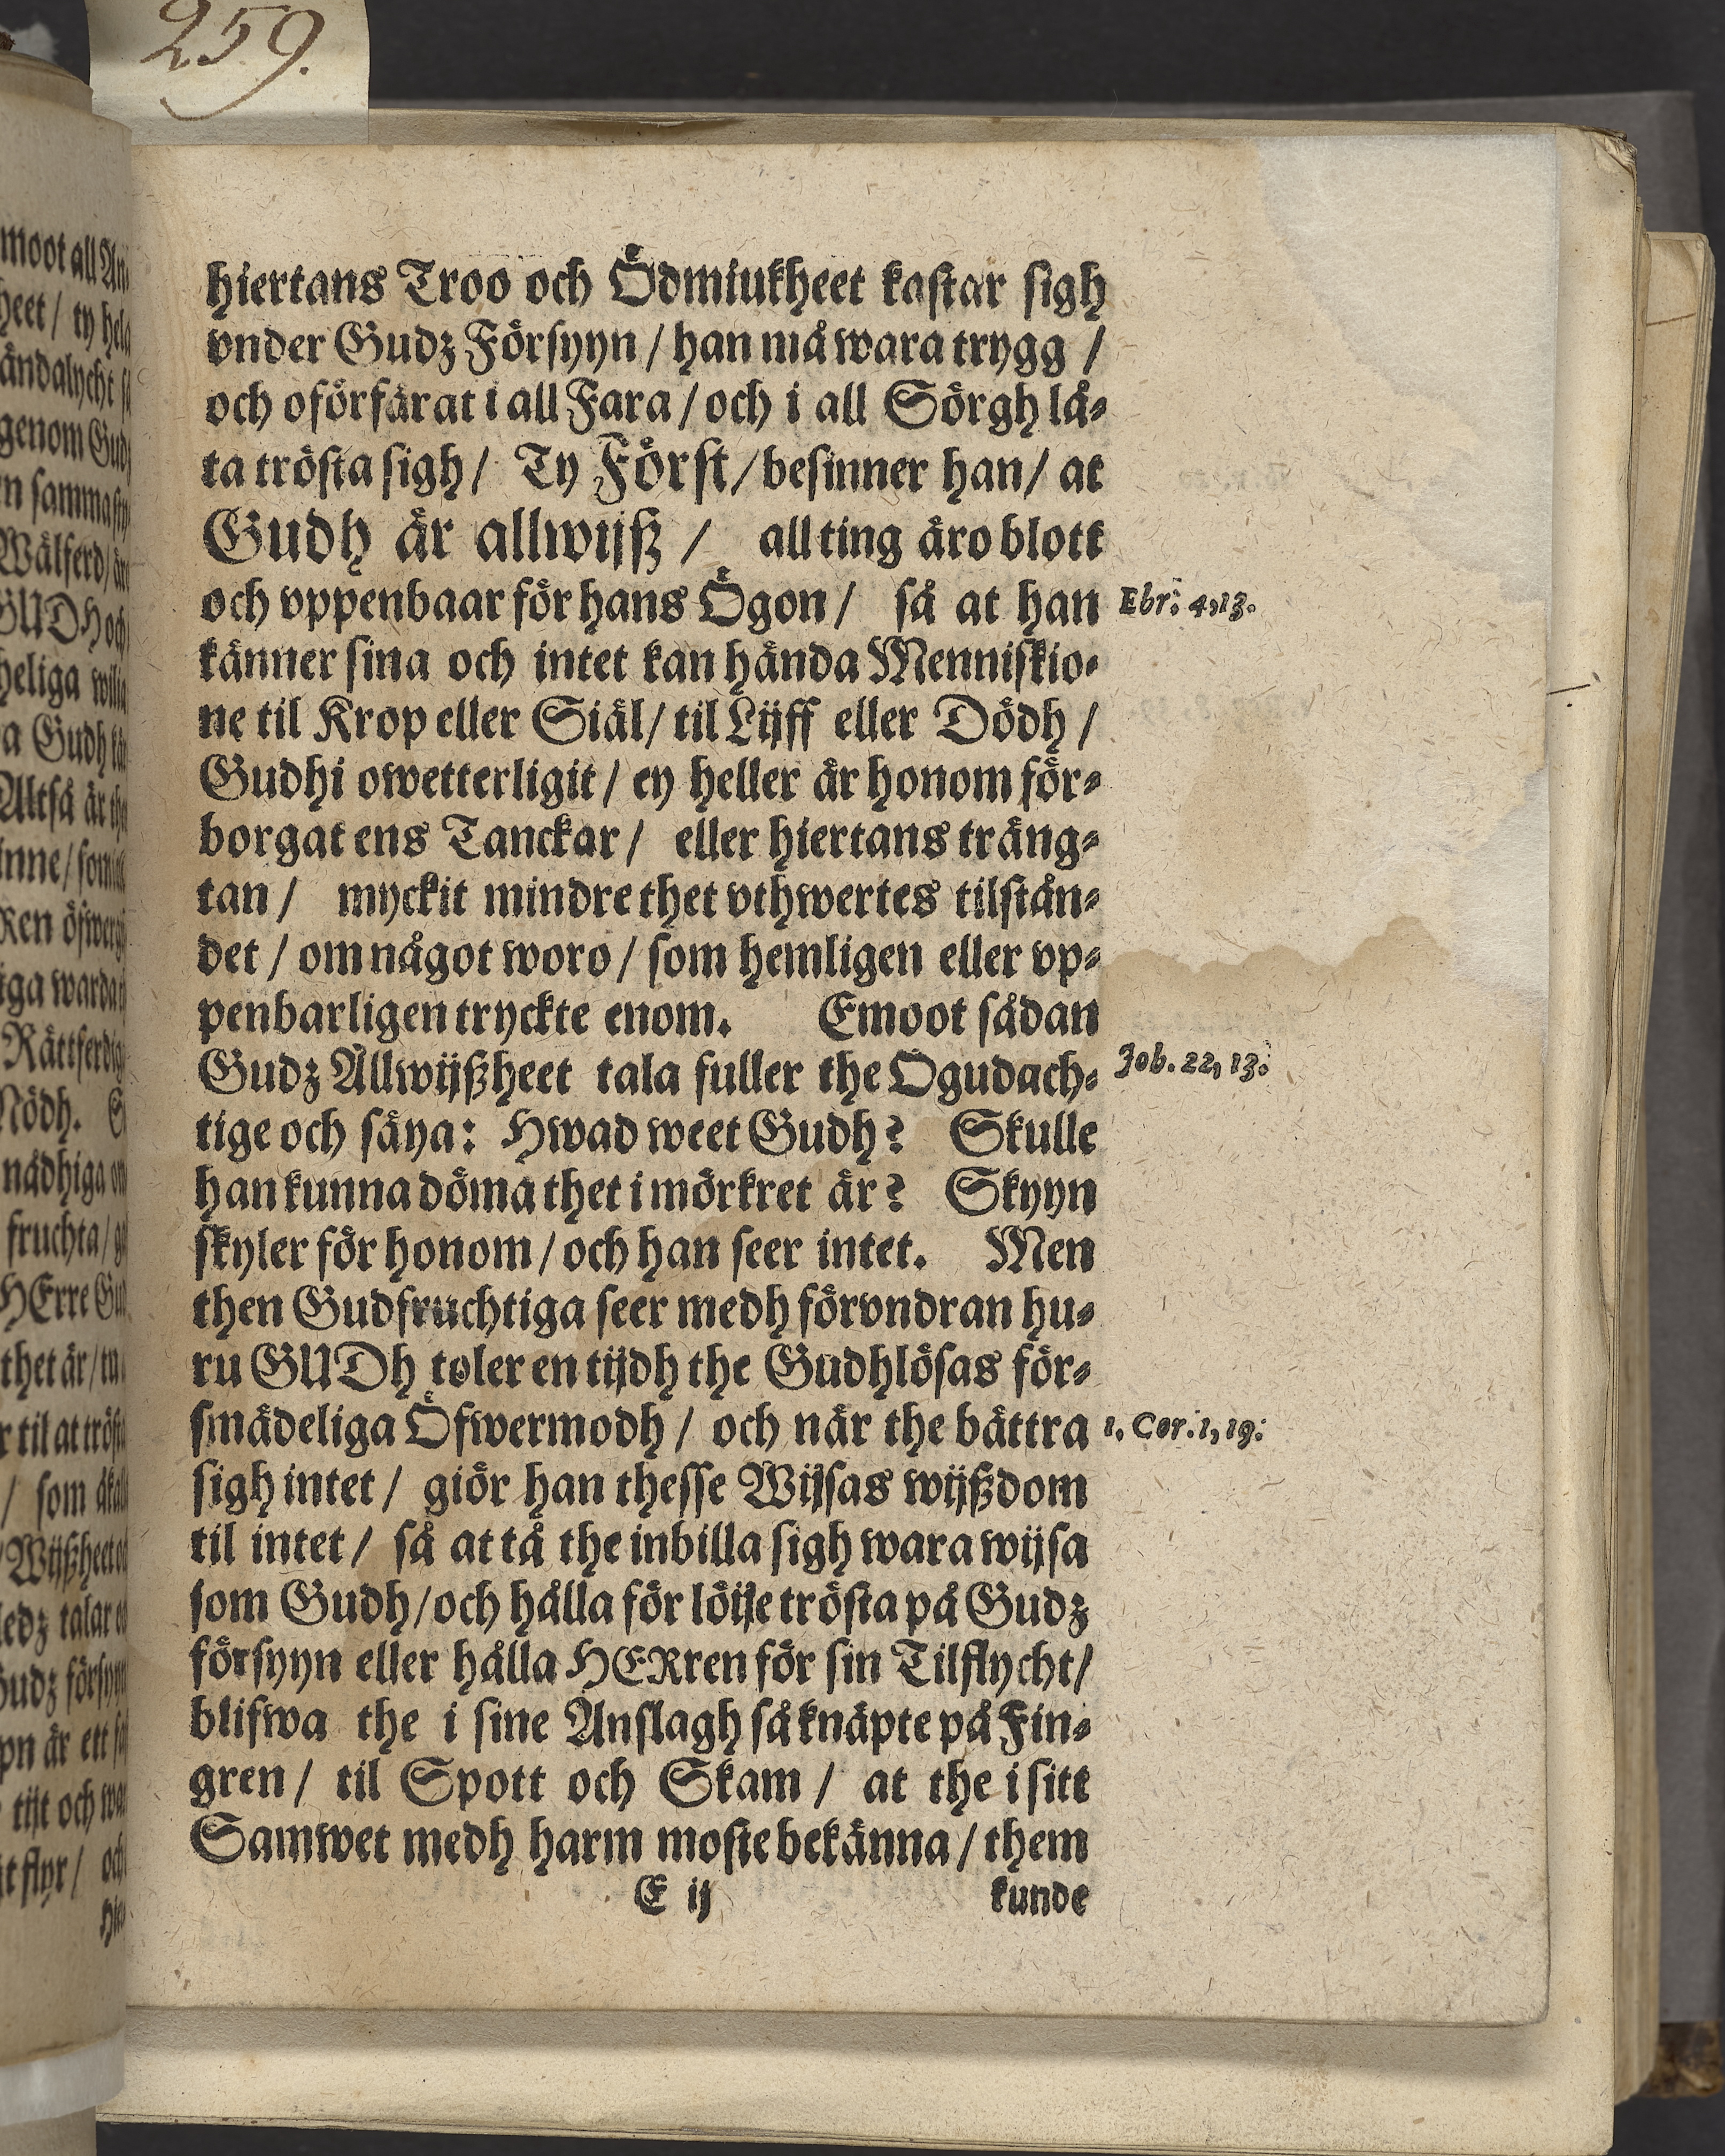 259.
hiertans Troo och Ödmiukheet kastar sigh
vnder Gudz Försyyn / han må wara trygg /
och oförfärat i all Fara / och i all Sörgh lå-
ta trösta sigh / Ty Först / besinner han / at
Gudh är allwijß / all ting äro blott
och vppenbaar för hans Ögon / så at han
Ebr: 4,13.
känner sina och intet kan hända Menniskio-
ne til Krop eller Siäl / til Lijff eller Dödh /
Gudhi owetterligit / ey heller är honom för-
borgat ens Tanckar / eller hiertans träng-
tan / myckit mindre thet vthwertes tilstån-
det / om något woro / som hemligen eller vp-
penbarligen tryckte enom. Emoot sådan
Gudz Allwijßheet tala fuller the Ogudach-
Job. 22, 13:
tige och säya: Hwad weet Gudh? Skulle
han kunna döma thet i mörkret är? Skyyn
skyler för honom / och han seer intet. Men
then Gudfruchtiga seer medh förvndran hu-
ru GUDh toler en tijdh the Gudhlösas för-
smädeliga Öfwermodh / och när the bättra
1, Cor. 1, 19:
sigh intet / giör han thesse Wijsas wijßdom
til intet / så at tå the inbilla sigh wara wijsa
som Gudh / och hålla för löije trösta på Gudz
försyyn eller hålla HERren för sin Tilflycht /
blifwa the i sine Anslagh så knäpte på Fin-
gren / til Spott och Skam / at the i sitt
Samwet medh harm moste bekänna / them
E ij kunde